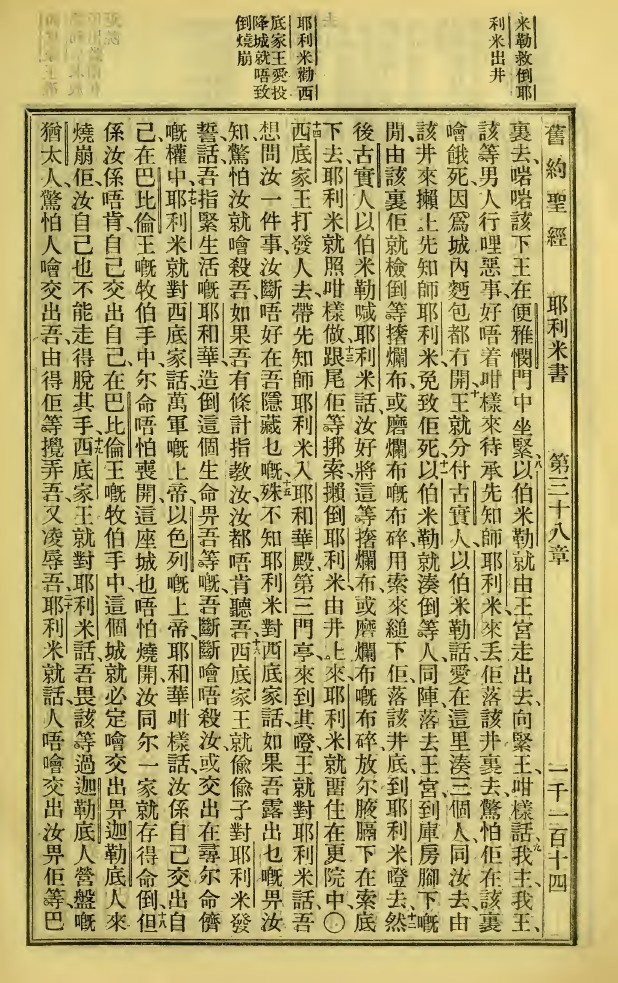 米勒救倒耶
利米出井
耶利米勸西
底家王愛投
降城就唔致
倒燒崩
舊約聖經　耶利米書　第三十八章　一千一百十四
裏去、啱啱該下王在便雅憫門中坐緊、八以伯米勒就由王宮走出去、向緊王、咁樣話、九我主、我王、
該等男人行哩惡事、好唔着咁樣來待承先知師耶利米、來丢佢落該井裏去、驚怕佢在該裏
噲餓死、因爲城內麪包都冇開、十王就分付古實人以伯米勒話、愛在這里湊三個人、同汝去、由
該井來攋上先知師耶利米、免致佢死、十一以伯米勒就湊倒等人、同陣落去王宮、到庫房腳下嘅
間、由該裏佢就檢倒等撦爛布、或磨爛布嘅布碎、用索來縋下佢落該井底、到耶利米嘡去、十二然
後古實人以伯米勒喊耶利米話、汝好將這等撦爛布、或磨爛布嘅布碎、放尔腋膈下、在索底
下去、耶利米就照咁樣做、十三跟尾佢等揶索、攋倒耶利米由井上來、耶利米就留住在更院中、〇
十四西底家王打發人去、帶先知師耶利米、入耶和華殿第三門亭、來到其嘡、王就對耶利米話、吾
想問汝一件事、汝斷唔好在吾隱藏乜嘅、十五殊不知耶利米對西底家話、如果吾露出乜嘅畀汝
知、驚怕汝就噲殺吾、如果吾有條計指教汝、汝都唔肯聽吾、十六西底家王就偷偷子對耶利米發
誓話、吾指緊生活嘅耶和華、造倒這個生命畀吾等嘅、吾斷斷噲唔殺汝、或交出在尋尔命儕
嘅權中、十七耶利米就對西底家話、萬軍嘅上帝、以色列嘅上帝耶和華、咁樣話、汝係自己交出自
己在巴比倫王嘅牧伯手中、尔命唔怕喪開、這座城也唔怕燒開、汝同尔一家就存得命倒、十八但
係汝係唔肯自己交出自己、在巴比倫王嘅牧伯手中、這個城就必定噲交出畀迦勒底人、來
燒崩佢、汝自己也不能走得脫其手、十九西底家王就對耶利米話、吾畏該等過迦勒底人營盤嘅
猶太人、驚怕人噲交出吾、由得佢等攪弄吾、又凌辱吾、二十耶利米就話、人唔噲交出汝畀佢等、巴